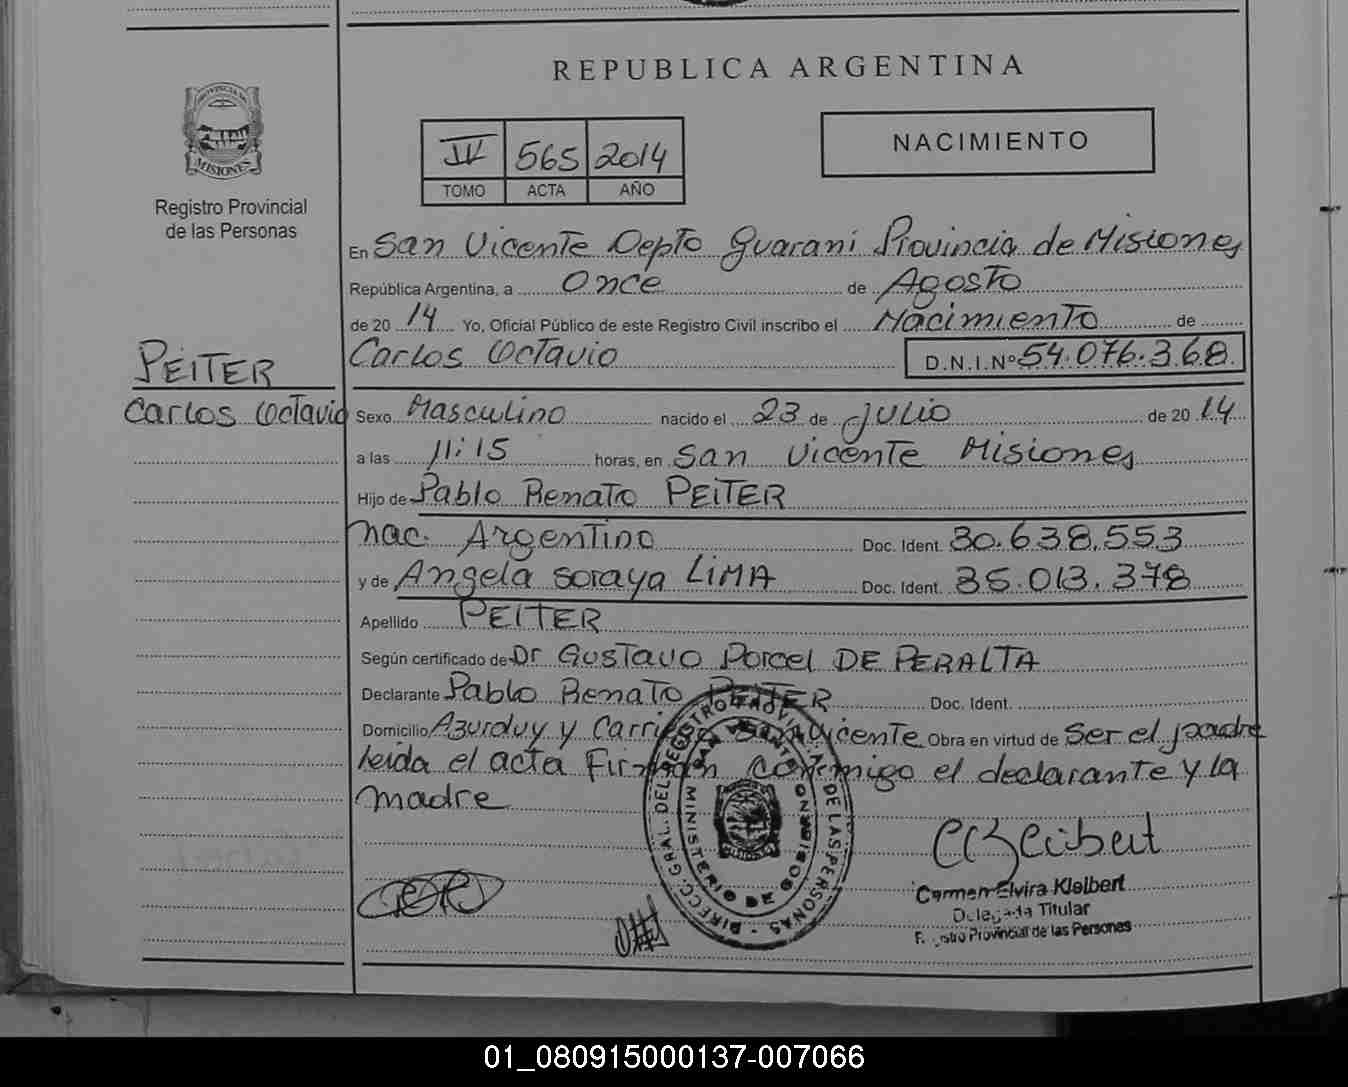 REPUBLICA ARGENTINA
PROVINCIA DE
MISIONES
Registro Provincial
de las Personas
IV 565 2014
TOMO ACTA AÑO
NACIMIENTO
En San Vicente Depto Guaraní Provincia de Misiones
República Argentina, a Once de Agosto
de 20 14 Yo, Oficial Público de este Registro Civil inscribo el Nacimiento de
Carlos Octavio D.N.I.Nº 54.076.368
PEITER
Carlos Octavio
Sexo Masculino nacido el 23 de Julio de 20 14
a las 11:15 horas, en San Vicente Misiones
Hijo de Pablo Renato PEITER
nac. Argentino Doc. Ident. 30.638.553
y de Angela Soraya LIMA Doc. Ident. 35.013.378
Apellido PEITER
Según certificado de Dr Gustavo Porcel DE PERALTA
Declarante Pablo Renato PEITER Doc. Ident.
Domicilio Azurduy y San Vicente Obra en virtud de Ser el padre
leida el acta Firman conmigo el declarante y la
madre
DIRECC. GRAL. DEL REGISTRO PROVINCIAL DE LAS PERSONAS
MINISTERIO DE GOBIERNO
SAN VICENTE
Carmen Elvira Kleibert
Delegada Titular
Registro Provincial de las Personas
01_080915000137-007066